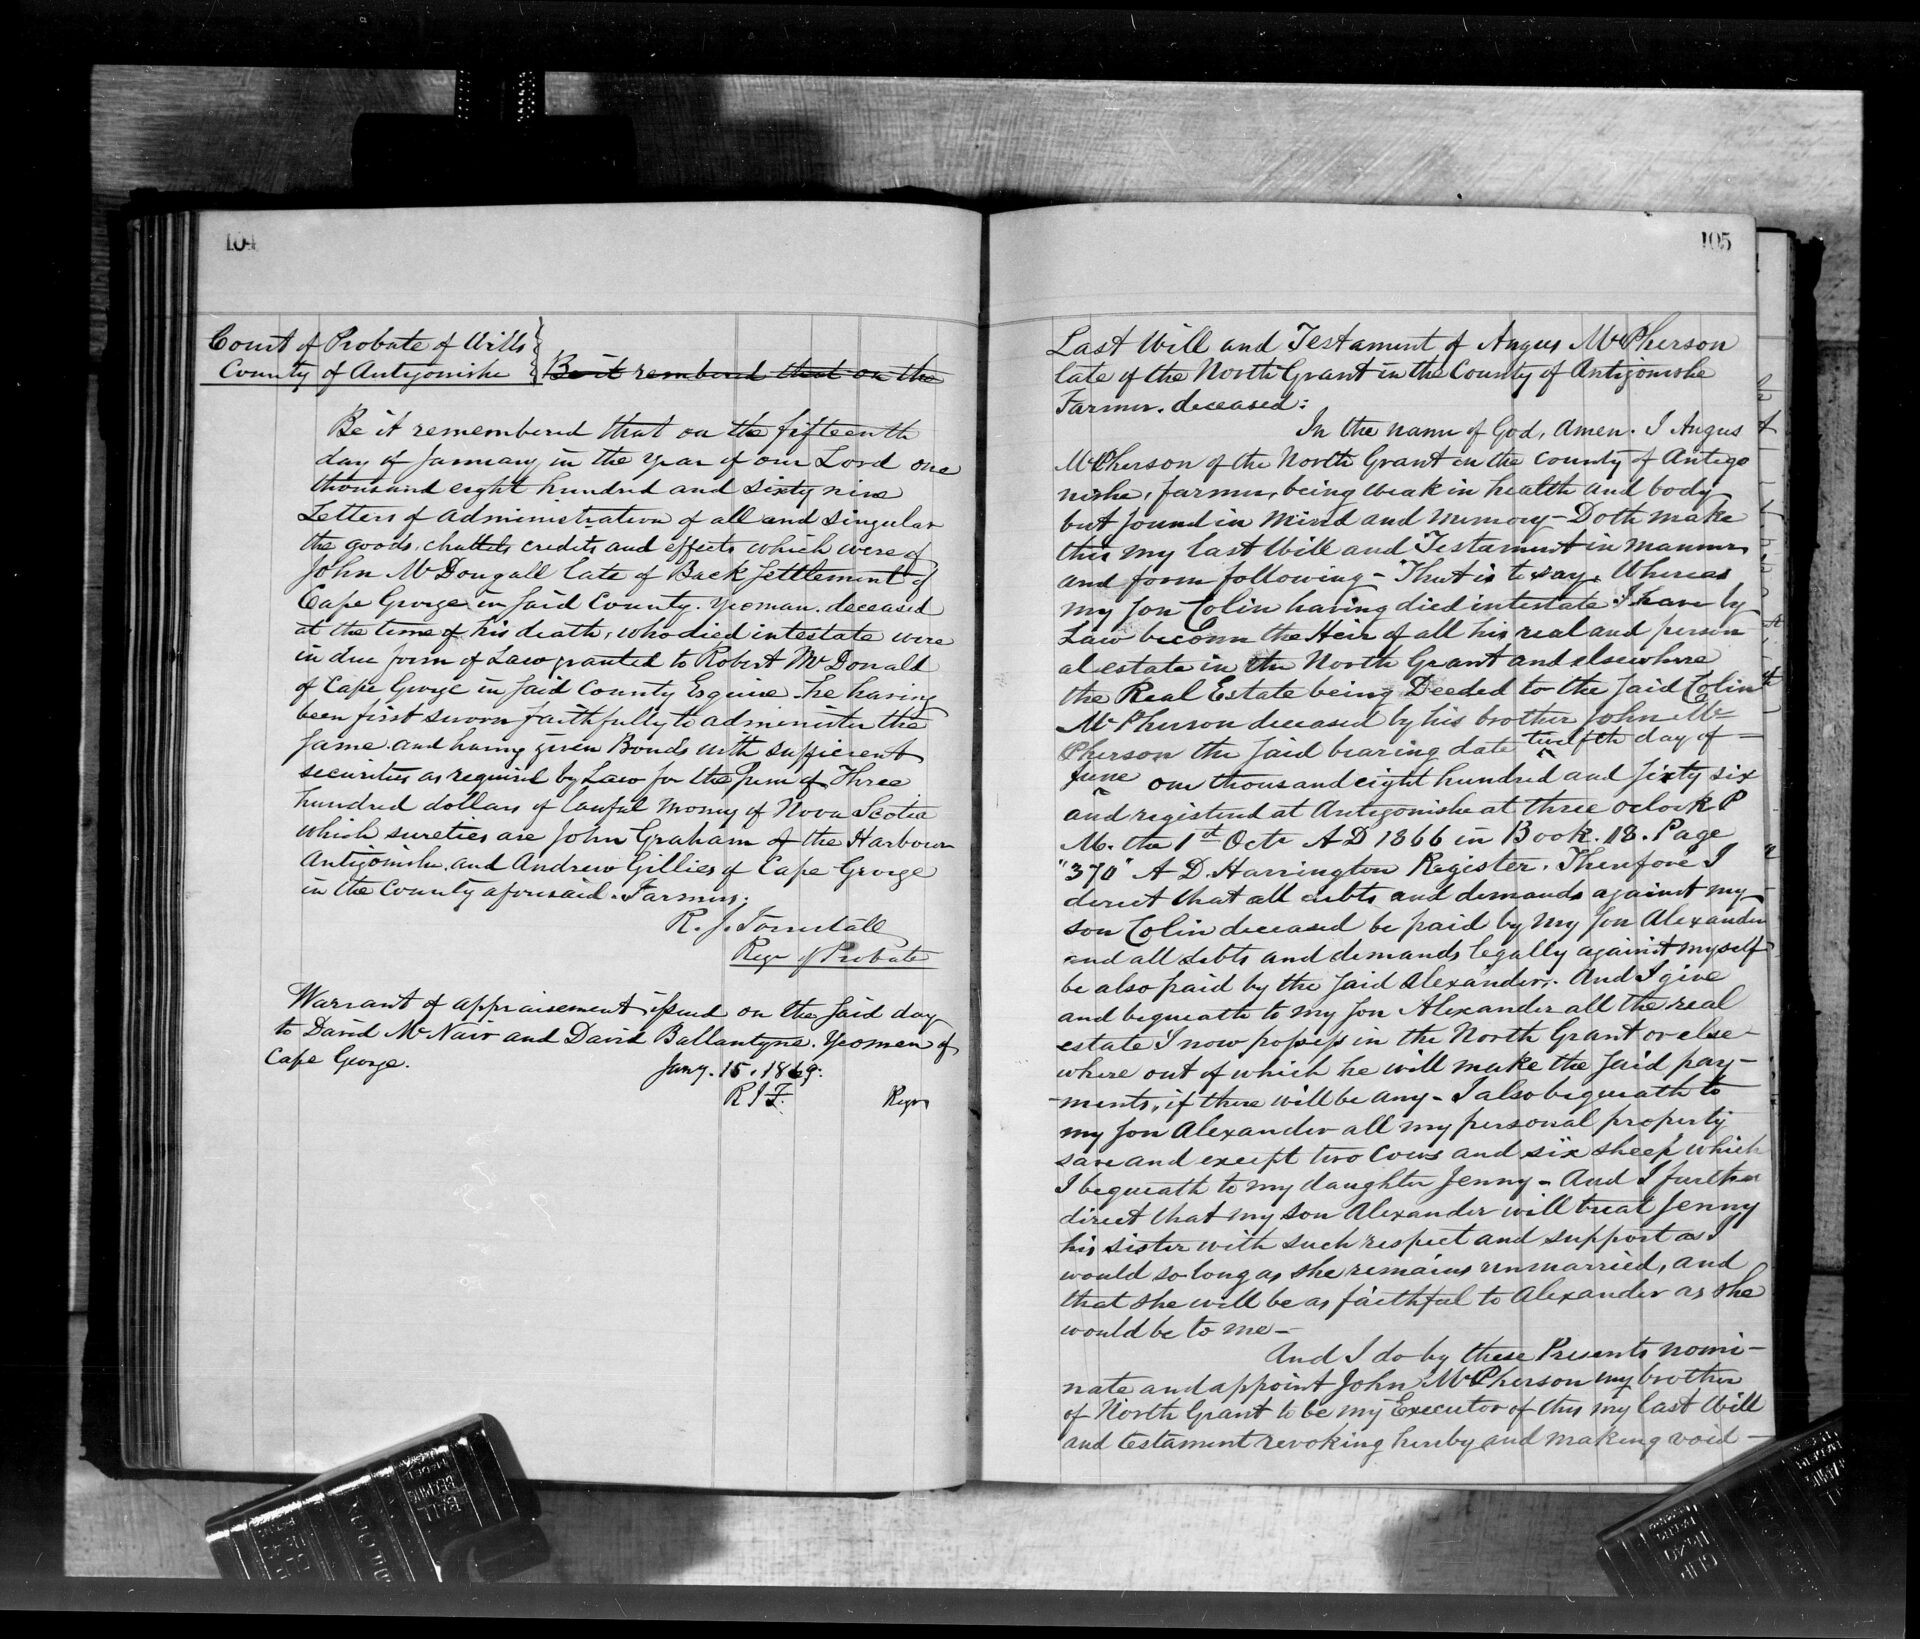 104
Court of Probate of Wills
County of Antigonishe
Be it rembered that on the
Be it remembered that on the fifteenth
day of January in the year of our Lord one
thousand eight hundred and sixty nine
Letters of administration of all and singular
the goods, chattels credits and effects which were of
John McDougall late of Back Settlement of
Cape George in said County. yeoman. deceased
at the time of his death, who died intestate were
in due form of Law granted to Robert McDonald
of Cape George in said County Esquire. he having
been first sworn faithfully to administer the
same. and having given Bonds with sufficient
securities as required by Law for the sum of Three
hundred dollars of lawful money of Nova Scotia
which sureties are John Graham of the Harbour
Antigonishe. and Andrew Gillies of Cape George
in the County aforesaid. Farmers.
R. J.
Regr of Probate
Warrant of appraisement issued on the said day
to David McNair and David Ballantyne. Yeomen of
Cape George.
Jany. 15, 1869.
R J F. Regr
105
Last Will and Testament of Angus McPherson
late of the North Grant in the County of Antigonishe
Farmer. deceased:
In the name of God, Amen. I Angus
McPherson of the North Grant in the County of Antigo
nishe, farmer, being weak in health and body
but sound in mind and memory - Doth make
this my last Will and Testament in manner
and form following - That is to say, Whereas
my son Colin having died intestate I have by
Law become the Heir of all his real and person
al estate in the North Grant and elsewhere
the Real Estate being Deeded to the said Colin
McPherson deceased by his brother John Mc
Pherson the said bearing date twelfth day of
June one thousand eight hundred and sixty six
and registered at Antigonishe at three oclock P
M. the 1st Octr AD 1866 in Book. 18. Page
"370" A D. Harrington Register. Therefore I
direct that all debts and demands against my
son Colin deceased be paid by my son Alexander
and all debts and demands legally against myself
be also paid by the said Alexander. And I give
and bequeath to my son Alexander all the real
estate I now possess in the North Grant or else-
where out of which he will make the said pay-
ments, if there will be any - I also bequeath to
my son Alexander all my personal property
save and except two cows and six sheep which
I bequeath to my daughter Jenny - And I further
direct that my son Alexander will treat Jenny
his sister with such respect and support as I
would so long as she remains unmarried, and
that she will be as faithful to Alexander as she
would be to me -
And I do by these Presents nomi-
nate and appoint John McPherson my brother
of North Grant to be my Executor of this my last Will
and testament revoking hereby and making void